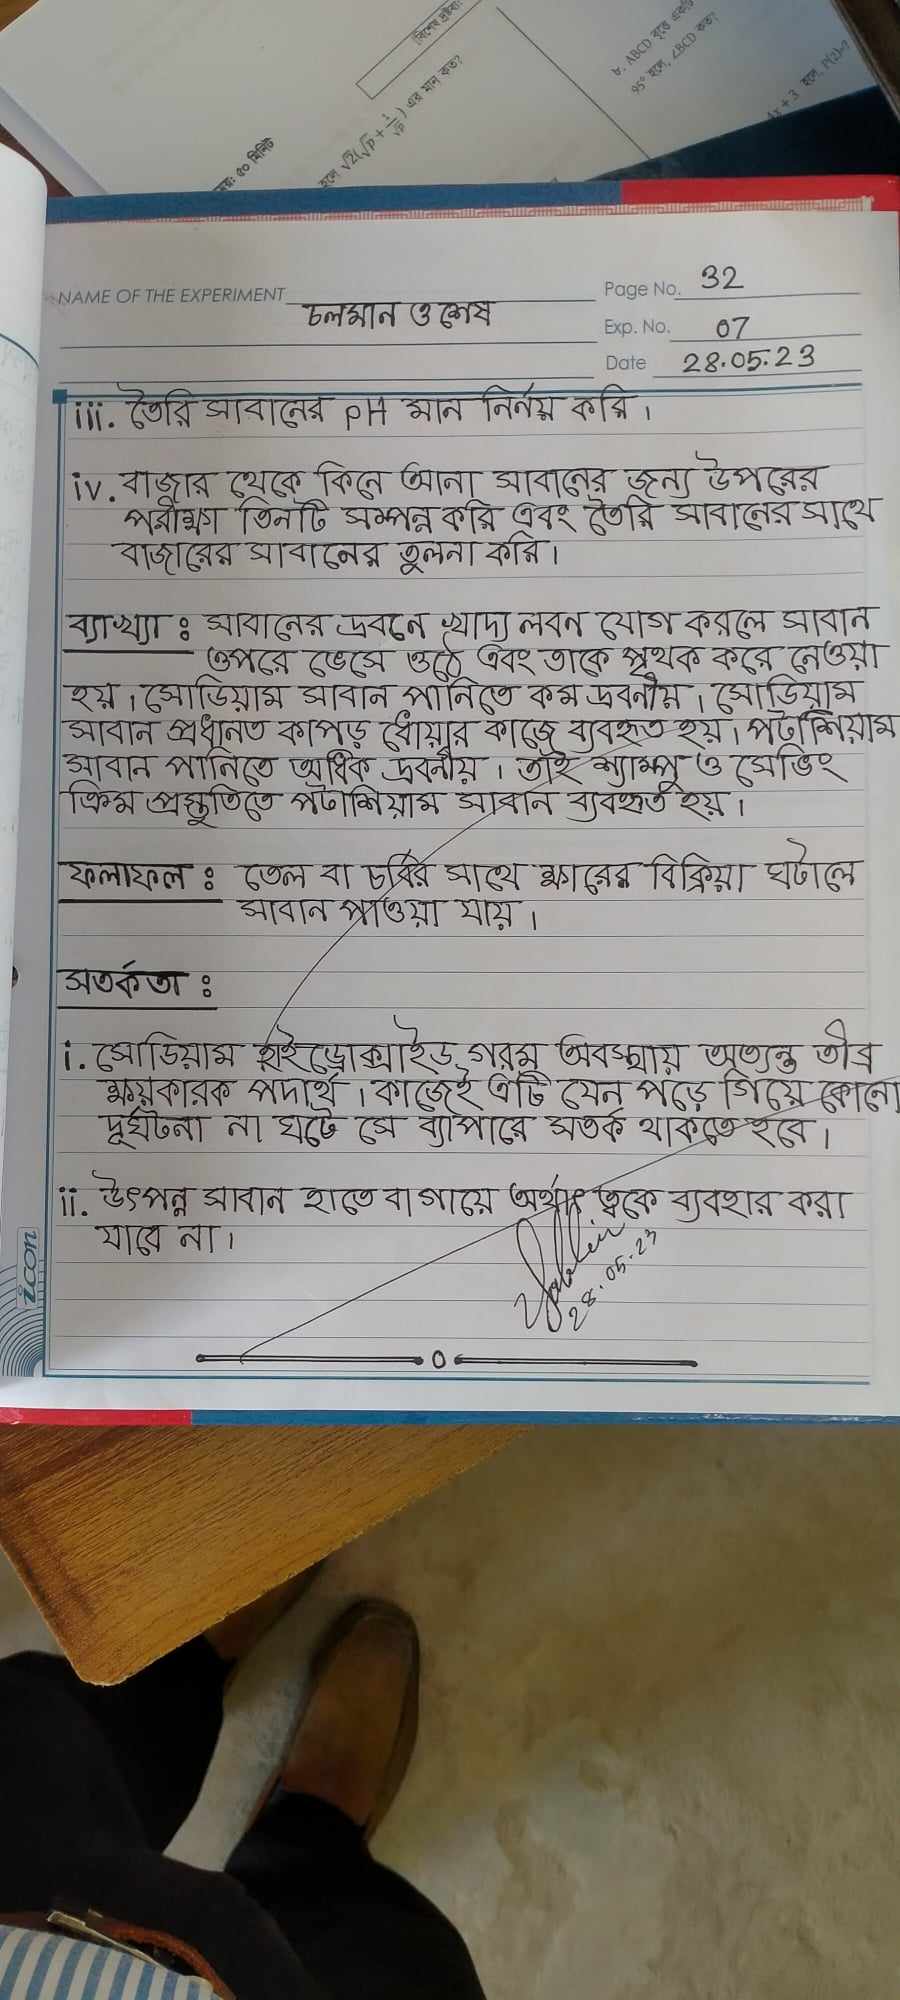 বিশেষ দ্রষ্টব্য:
৮. ABCD বৃত্তে একটি
95° হলে, ∠BCD কত?
হলে √2(√p + 1/√p) এর মান কত?
4x + 3 হলে, P(2)=?
সময়: ৫০ মিনিট
NAME OF THE EXPERIMENT চলমান ও শেষ
Page No. 32
Exp. No. 07
Date 28.05.23
iii. তৈরি সাবানের pH মান নির্নয় করি।
iv. বাজার থেকে কিনে আনা সাবানের জন্য উপরের
পরীক্ষা তিনটি সম্পন্ন করি এবং তৈরি সাবানের সাথে
বাজারের সাবানের তুলনা করি।
ব্যাখ্যা : সাবানের দ্রবনে খাদ্য লবন যোগ করলে সাবান
ওপরে ভেসে ওঠে এবং তাকে পৃথক করে নেওয়া
হয়। সোডিয়াম সাবান পানিতে কম দ্রবনীয়। সোডিয়াম
সাবান প্রধানত কাপড় ধোয়ার কাজে ব্যবহৃত হয়। পটাশিয়াম
সাবান পানিতে অধিক দ্রবনীয়। তাই শ্যাম্পু ও সেভিং
ক্রিম প্রস্তুতিতে পটাশিয়াম সাবান ব্যবহৃত হয়।
ফলাফল : তেল বা চর্বির সাথে ক্ষারের বিক্রিয়া ঘটালে
সাবান পাওয়া যায়।
সতর্কতা :
i. সোডিয়াম হাইড্রোক্সাইড গরম অবস্থায় অত্যন্ত তীব্র
ক্ষয়কারক পদার্থ। কাজেই এটি যেন পড়ে গিয়ে কোনো
দুর্ঘটনা না ঘটে সে ব্যাপারে সতর্ক থাকতে হবে।
ii. উৎপন্ন সাবান হাতে বা গায়ে অর্থাৎ ত্বকে ব্যবহার করা
যাবে না।
28.05.23
icon